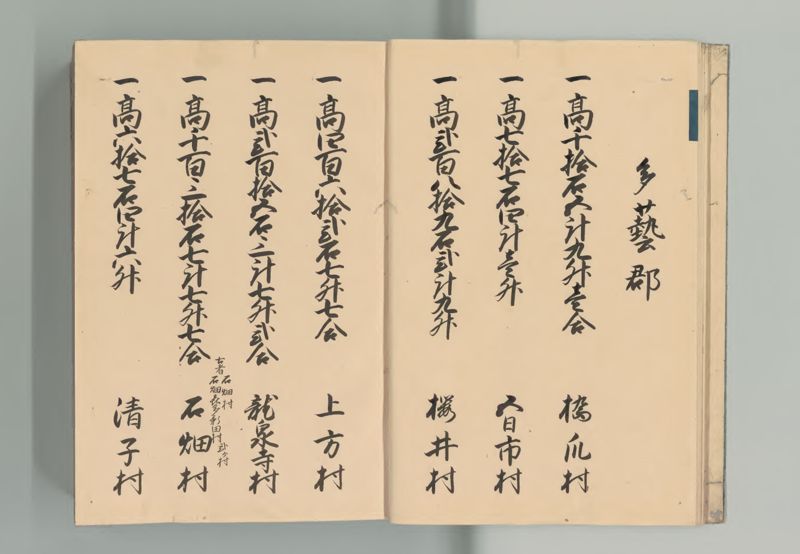 多藝郡
一高千拾石五斗九升壱合 橋爪村
一高七拾七石四斗壱升 五日市村
一高弐百八拾九石弐斗九升 櫻井村
一高四百六拾弐石七升七合 上方村
一高弐百拾五石二斗七升弐合 龍泉寺村
一高千百三拾石七斗七升七合 石畑村
古者 石畑村
石畑 新田村
一高六拾七石四斗六升 清子村